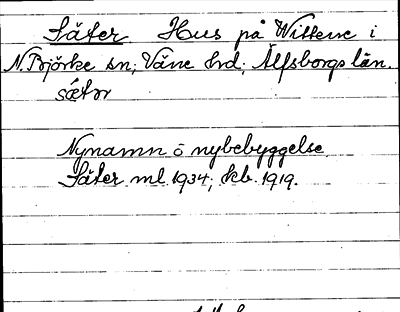 Säter Hus på Wittene i
N. Björke sn; Väne hd; Älfsborgs län.
sǽtər
Nynamn o nybebyggelse
Säter ml. 1934; kb. 1919.